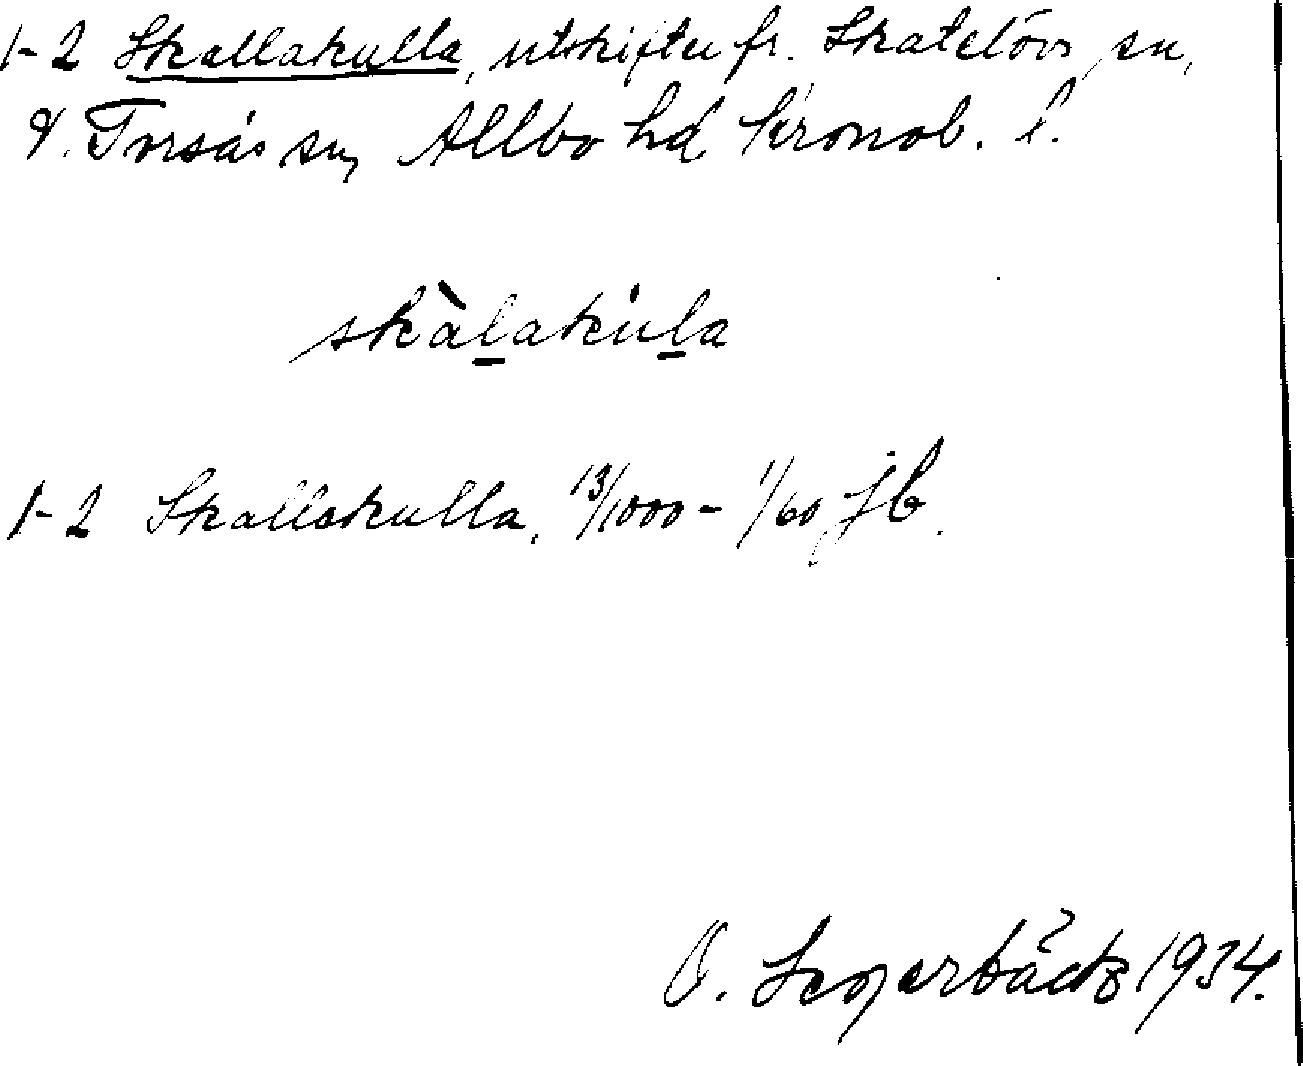 1-2 Skallakulla, utskiften fr. Skatelövs sn,
V. Torsås sn, Allbo hd Kronob. l.
skàl̲akúl̲a
1-2 Skallakulla, 13/1000 - 1/60 jb.
O. Segerbäck 1934.